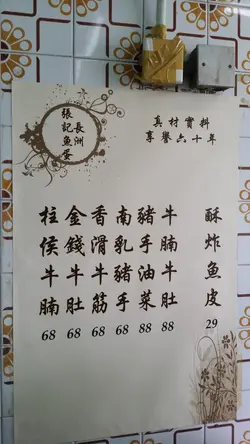 長洲
張記魚蛋
真材實料
享譽六十年
酥炸魚皮 29
牛腩牛肚 88
豬手油菜 88
南乳豬手 68
香滑牛筋 68
金錢牛肚 68
柱侯牛腩 68